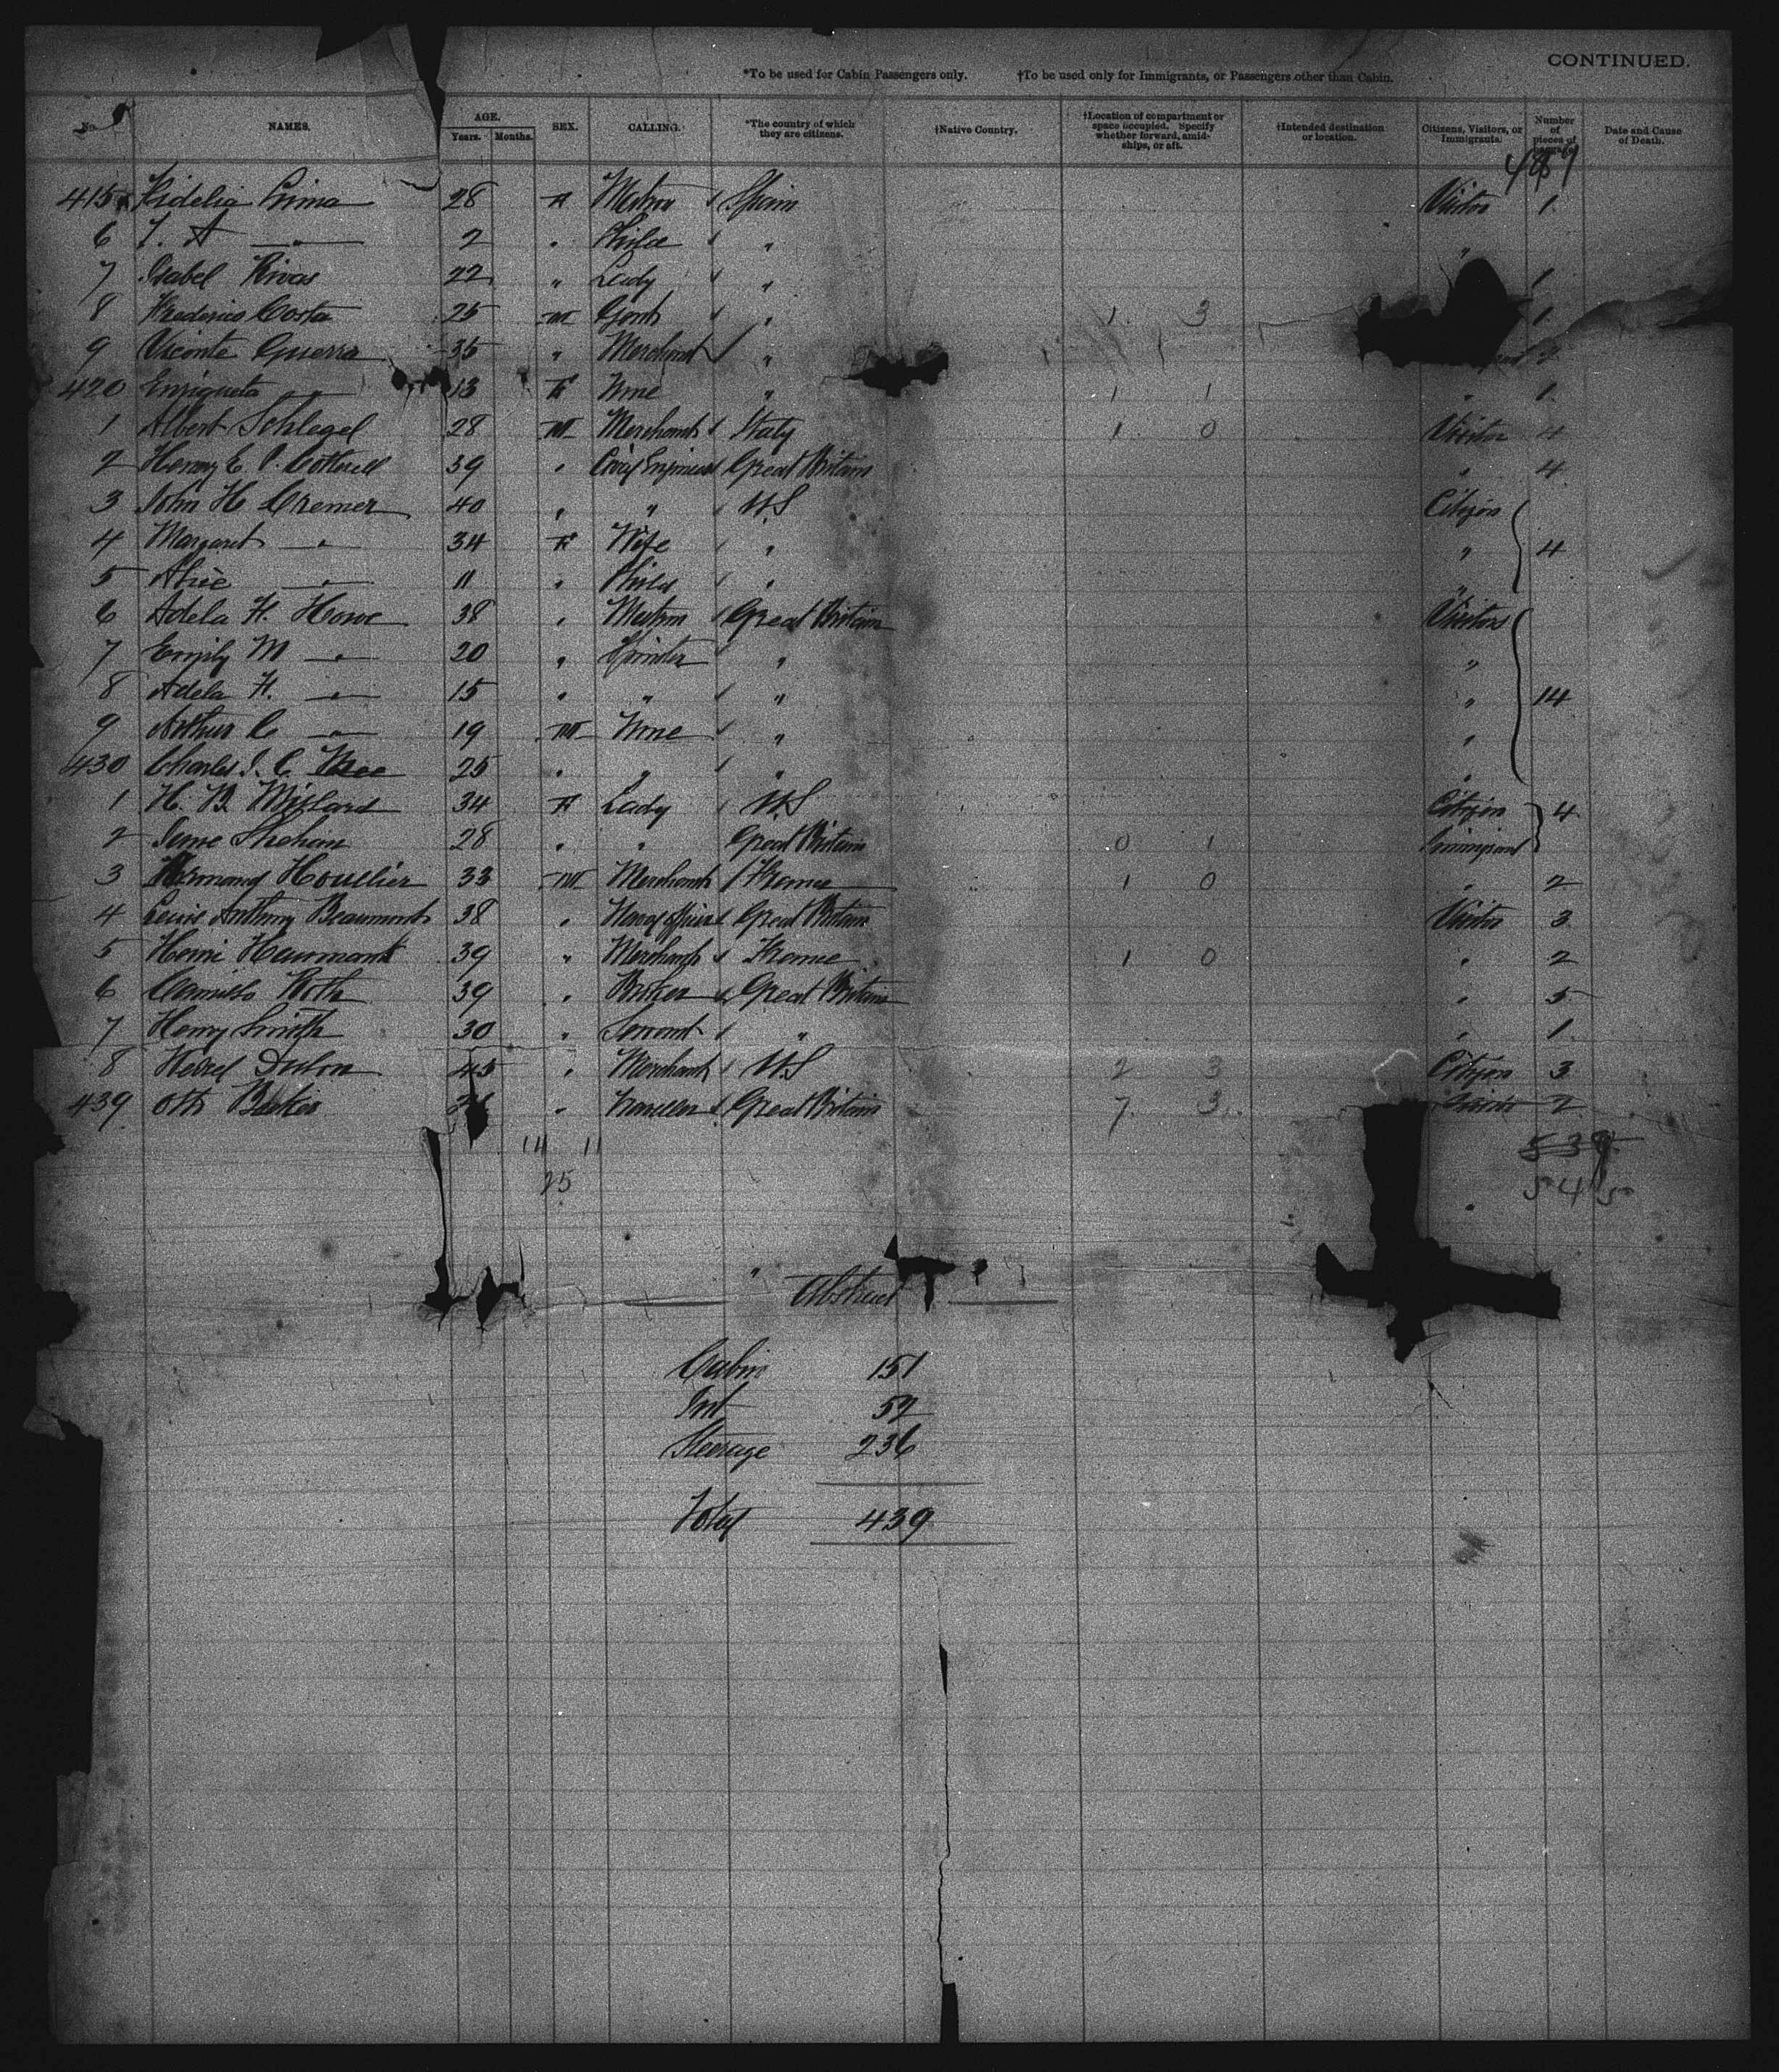 CONTINUED.
*To be used for Cabin Passengers only. †To be used only for Immigrants, or Passengers other than Cabin.
No. NAMES. AGE. Years. Months. SEX. CALLING. *The country of which they are citizens. †Native Country. †Location of compartment or space occupied. Specify whether forward, amidships, or aft. †Intended destination or location. Citizens, Visitors, or Immigrants. Number of pieces of Date and Cause of Death.
415 Fidelia Prima 28 F Matron Spain Visitor 1
6 J. A — " — 2 " Child " "
7 Isabel Rivas 22 " Lady " 1
8 Frederico Costa 25 M Gent " 1 3 1
9 Viconte Guerra 35 " Merchant " 2
420 Enriqueta — " — 13 F None " 1 1 " 1
1 Albert Schlegel 28 M Merchant Italy 1 0 Visitor 4
2 Henry E. Cotterell 39 " Civil Engineer Great Britain " 4
3 John H Cremer 40 " " U.S Citizen
4 Margaret — " — 34 F Wife " " 4
5 Alice — " — 11 " Child " "
6 Adela H. Howe 38 " Matron Great Britain Visitors
7 Emily M — " — 20 " Spinster " "
8 Adela H. — " — 15 " " " " 14
9 Arthur C — " — 19 M None " "
430 Charles 25 " " " "
1 H. B. Millard 34 F Lady U.S Citizen 4
2 Shehan 28 " " Great Britain 0 1 Immigrant
3 Armand Houllier 33 M Merchant France 1 0 " 2
4 Anthony Beaumont 38 " Naval officer Great Britain Visitor 3
5 Henri Haurmant 39 " Merchant France 1 0 " 2
6 Camillo Roth 39 " Broker Great Britain " 5
7 Henry Smith 30 " Servant " " 1
8 Dulon 45 " Merchant U.S 2 3 Citizen 3
439 Otto " Traveller Great Britain 7 3 2
14 11 539
25 545
Abstract
Cabin 151
Int 52
Steerage 236
Total 439